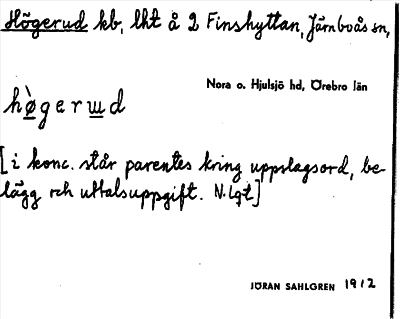 Högerud kb, lht å 2 Finshyttan, Järnboås sn,
Nora o. Hjulsjö hd, Örebro län
hø̀gerud
[i konc. står parentes kring uppslagsord, be-
lägg och uttalsuppgift. N. Lgt]
JÖRAN SAHLGREN 1912